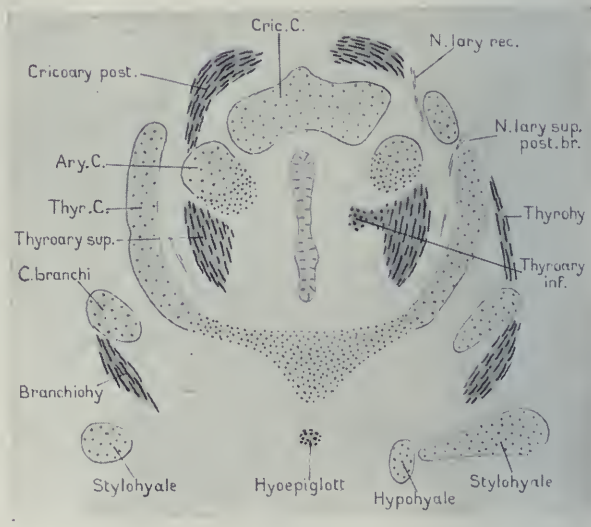 Cric.C.
N.lary rec.
Cricoary post.
N.lary sup.
post.br.
Ary.C.
Thyr.C.
Thyrohy
Thyroary sup.
Thyroary
inf.
C.branchi
Branchiohy
Stylohyale
Hyoepiglott
Hypohyale
Stylohyale